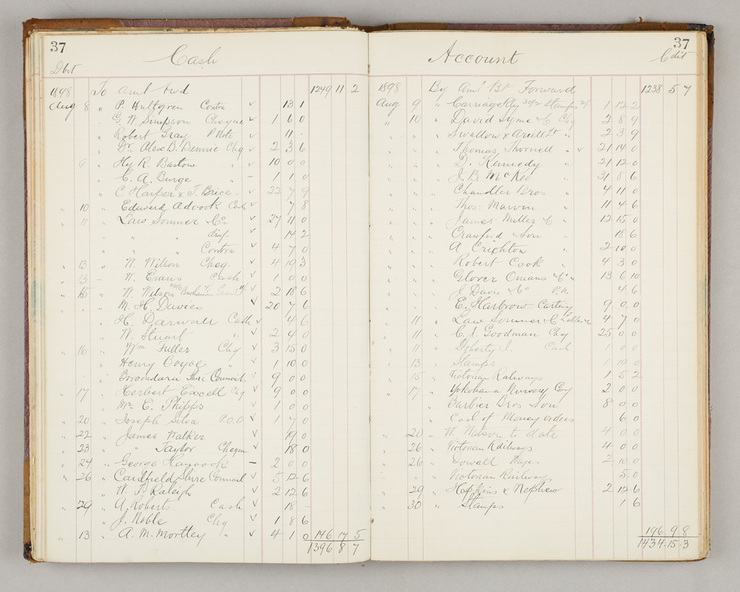 37
Cash
Dbt
1898 To Amt fwd 1249 11 2
Aug 8 " P. Hultgren Contra 13 1
G. W. Simpson Cheque 1 6 0
Robert Gray P Note 11 -
Dr. Alex B. Bennie Chq 2 3 6
Hy R. Barlow 10 0 0
E. A. Burge 1 1 0
C Harper & T. Brice 22 7 9
10 Edward Adcock Cash 7 8
11 Law Somner & Co 27 11 0
" " " 14 2
" " Contra 4 7 0
13 W. Wilson Cheq 4 10 3
W. Evans Cash 1 0 0
15 W. Wilson 2 18 6
M. H. Davies 20 7 6
H. Darwall Cash 4 6
W. Stuart 2 4 0
16 Wm Fuller Chq 3 15 0
Henry 1 10 0
Shire Council 9 0 0
17 Herbert 9 0 0
Mr C. Phipps 1 0 0
20 Joseph Silva P.O.O 1 0
22 James Walker 19 0
23 " Taylor Cheque 18 0
24 George 2 0 0
26 Caulfield Shire Council 5 12 6
W. P. Raleigh 2 12 6
29 A. Robert Cash 18 -
J. Noble Chq 1 8 6
13 A. M. Mortley " 4 1 0 146 17 5
1396 8 7
37
Account
Cdit
1898 By Amt Bt Forward 1238 5 7
Aug 9 " Carriage 1 12 2
" 10 " David Syme & Co Chq 2 8 9
" Swallow & Ariell 2 3 9
" Thomas Thornell " 21 14 0
" D. Kennedy " 21 12 0
" J. B. McKie " 31 8 6
" Chandler Bros " 4 11 0
" Thos. Marvin " 11 4 6
" James Miller & Co " 12 15 0
" Crawford & Son 18 6
" A Crighton " 2 10 0
" Robert Cook " 4 3 0
" Glover Onians & Co " 13 6 10
" J. Davis & Co 4 6
" E. Harbrow Cartney 9 0 0
11 " Law Somner & Co 4 7 0
11 " C. A Goodman Chq 25 0 0
11 J. Cash 1 0 0
13 Stamps 10 0
15 Victorian Railways 1 5 2
17 Yokohama Nursery Coy 2 0 0
Barbier Bros & Son 8 0 0
Cost of Money orders 6 0
20 W. Watson to date 4 0 0
26 Victorian Railways 4 0 0
26 Howatt Wages 2 10 0
Victorian Railways 5 0
29 Hopkins & Nephew 2 12 6
30 Stamps 1 6
196 9 8
1434 15 3